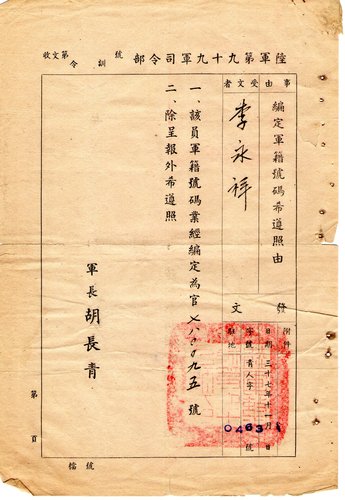 陸軍第九十九軍司令部 訓令 號
收文第 號
事由 受文者
編定軍籍號碼希遵照由
李永祥
發文
附件
日期 三十七年十一月 日
字號 青人字 0463 號
駐地
一、該員軍籍號碼業經編定為官七八 九五號
二、除呈報外希遵照
軍長 胡長青
第 頁
檔 號